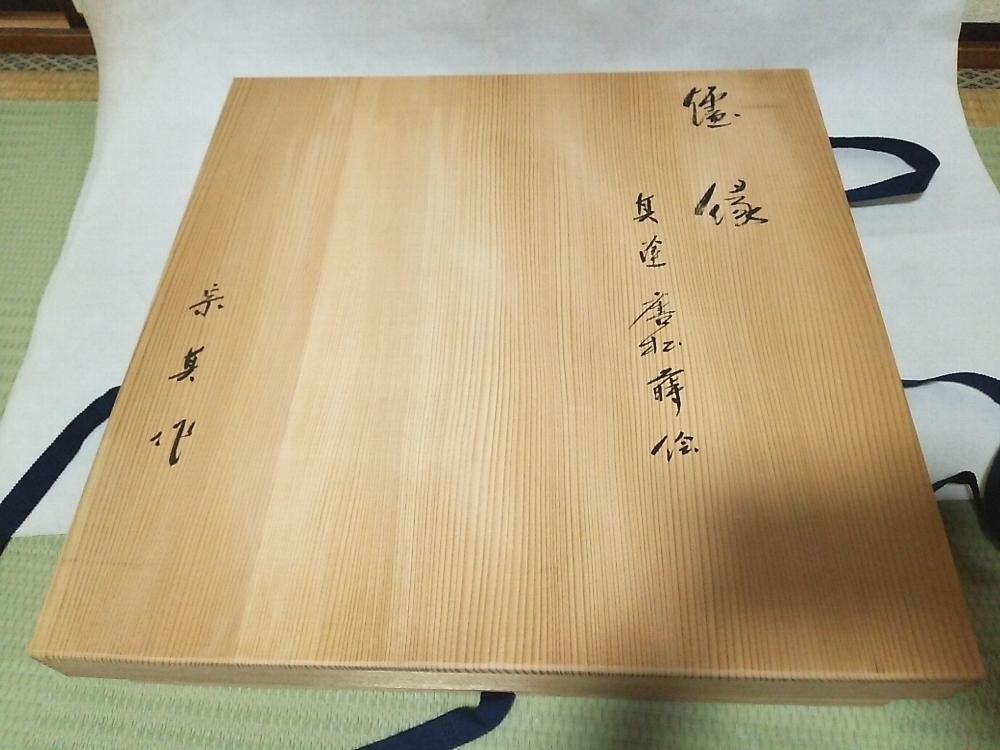 爐縁
真塗唐松蒔絵
宗真作